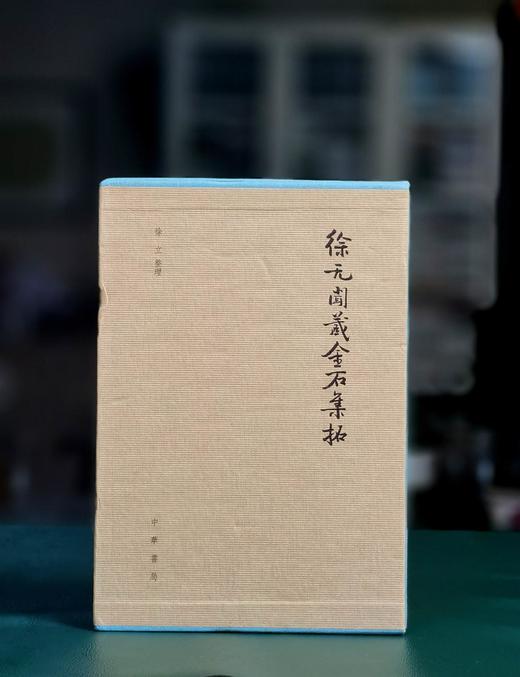 徐无聞藏金石集拓
徐立整理
中華書局